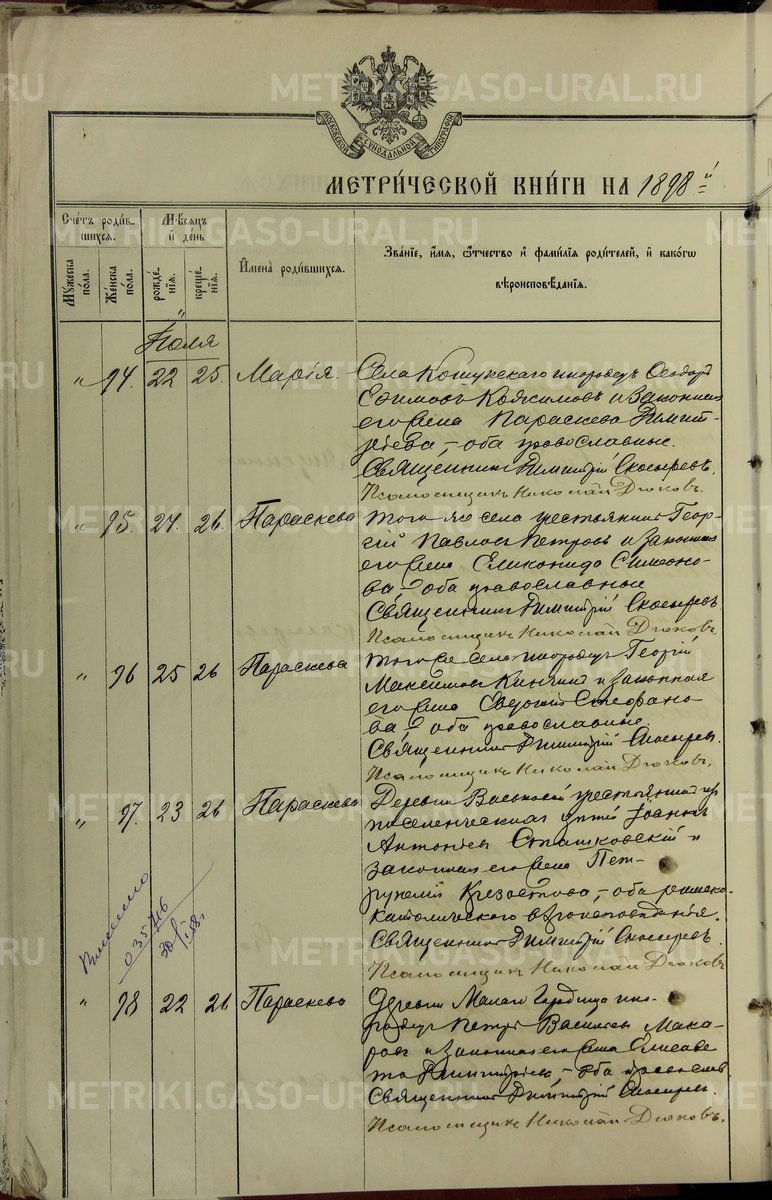 METRIKIGASO-URAL.RU
МОСКОВСКОЙ СѴНОДАЛЬНОЙ ТИПОГРАФІИ
МЕТРИ́ЧЕСКОЙ КНИ́ГИ НА 1898 й
Сче́тъ роди́в-
шихсѧ.
Мѣсѧцъ
и҆ де́нь
И҆мена̀ роди́вшихсѧ.
Зва́нїе, и҆́мѧ, ѻ҆́тчество и҆ фамі́лїѧ роди́телей, и҆ како́гѡ
вѣроисповѣ́данїѧ.
Мꙋ́жеска по́ла.
Же́нска по́ла.
рожде́-
нїѧ.
креще́-
нїѧ.
Іюля
" 94. 22 25. Марія. Села Кошукскаго инородецъ Ѳеодоръ
Ефимовъ и законная
его жена Параскева Димит-
ріева, - оба православные.
Священникъ Димитрій Скосыревъ.
Псаломщикъ Николай Дюковъ.
" 95. 24. 26. Параскева Того же села крестьянинъ Геор-
гій Павловъ Петровъ и законная
его жена Симеоно-
ва, - оба православные
Священникъ Димитрій Скосыревъ
Псаломщикъ Николай Дюковъ
" 96 25 26 Параскева Того же села инородецъ Георгій
Максимовъ и законная
его жена Евдокія Стефано-
ва, - оба православные.
Священникъ Димитрій Скосыревъ.
Псаломщикъ Николай Дюковъ.
" 97. 23 26 Параскева Деревни Васьковой крестьянинъ изъ
поселенческихъ дѣтей Іоаннъ
Антоновъ Сташковскій и
законная его жена Пет-
- оба римско-
католическаго вѣроисповѣданія.
Священникъ Димитрій Скосыревъ
Псаломщикъ Николай Дюковъ
035716
" 98 22 26 Параскева Деревни Малаго Городища ино-
родецъ Петръ Васильевъ Мака-
ровъ и законная его жена Елисаве-
та Димитріева, - оба православн.
Священникъ Димитрій Скосыревъ.
Псаломщикъ Николай Дюковъ.